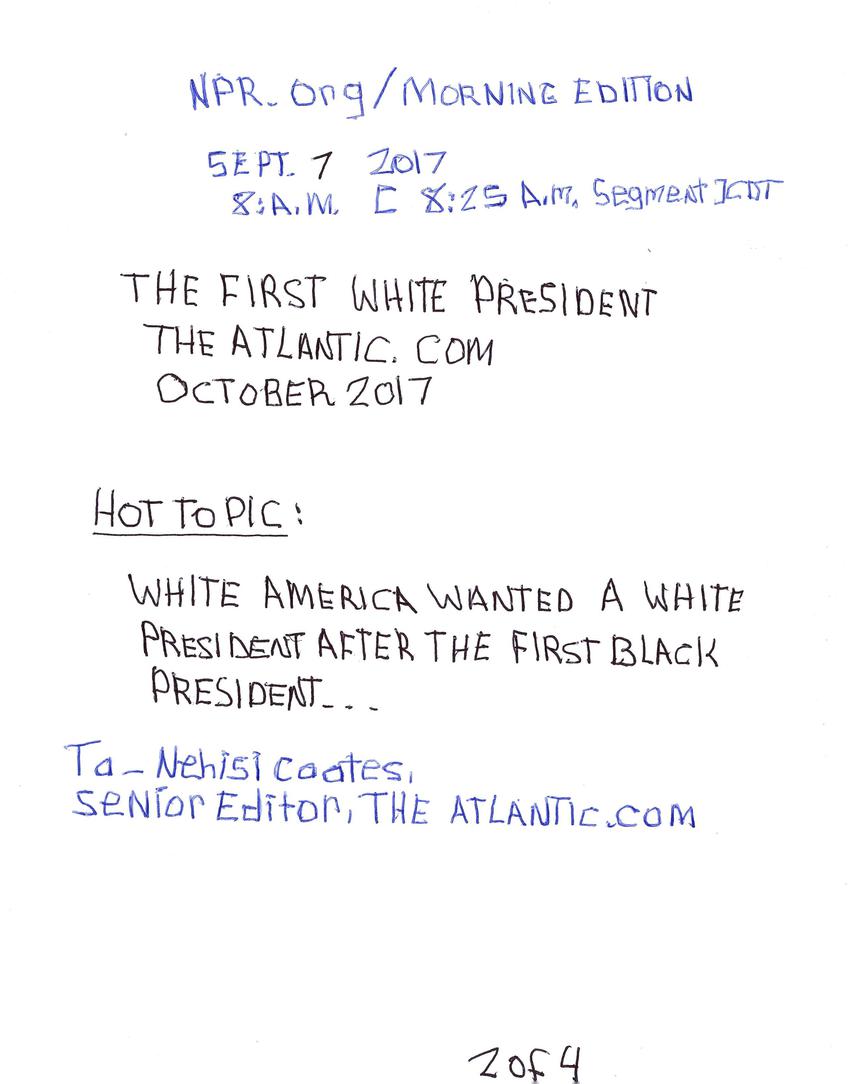 NPR. Org/MORNING EDITION
SEPT. 7 2017
8:A.M. [ 8:25 A.M. Segment] CDT
THE FIRST WHITE PRESIDENT
THE ATLANTIC. COM
OCTOBER 2017
HOT TOPIC:
WHITE AMERICA WANTED A WHITE
PRESIDENT AFTER THE FIRST BLACK
PRESIDENT...
Ta-Nehisi Coates,
SENior Editor, THE ATLANTIC.COM
2 of 4